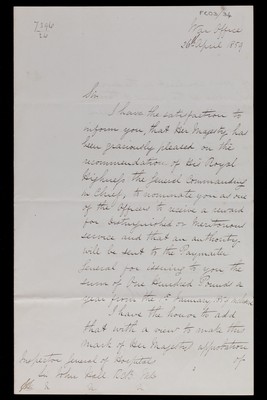 War Office
26 April 1859
Sir
I have the satisfaction to
inform you, that Her Majesty has
been graciously pleased on the
recommendation of His Royal
Highness the General Commanding
in Chief, to nominate you as one
of the Officers to receive a reward
for distinguished or Meritorious
service and that an authority
will be sent to the Paymaster
General for issuing to you the
sum of One Hundred Pounds a
year from the 1st January 1859
I have the honor to add
that with a view to make this
mark of Her Majesty's approbation
of
Inspector General of Hospitals
Sir John Hall K.C.B.